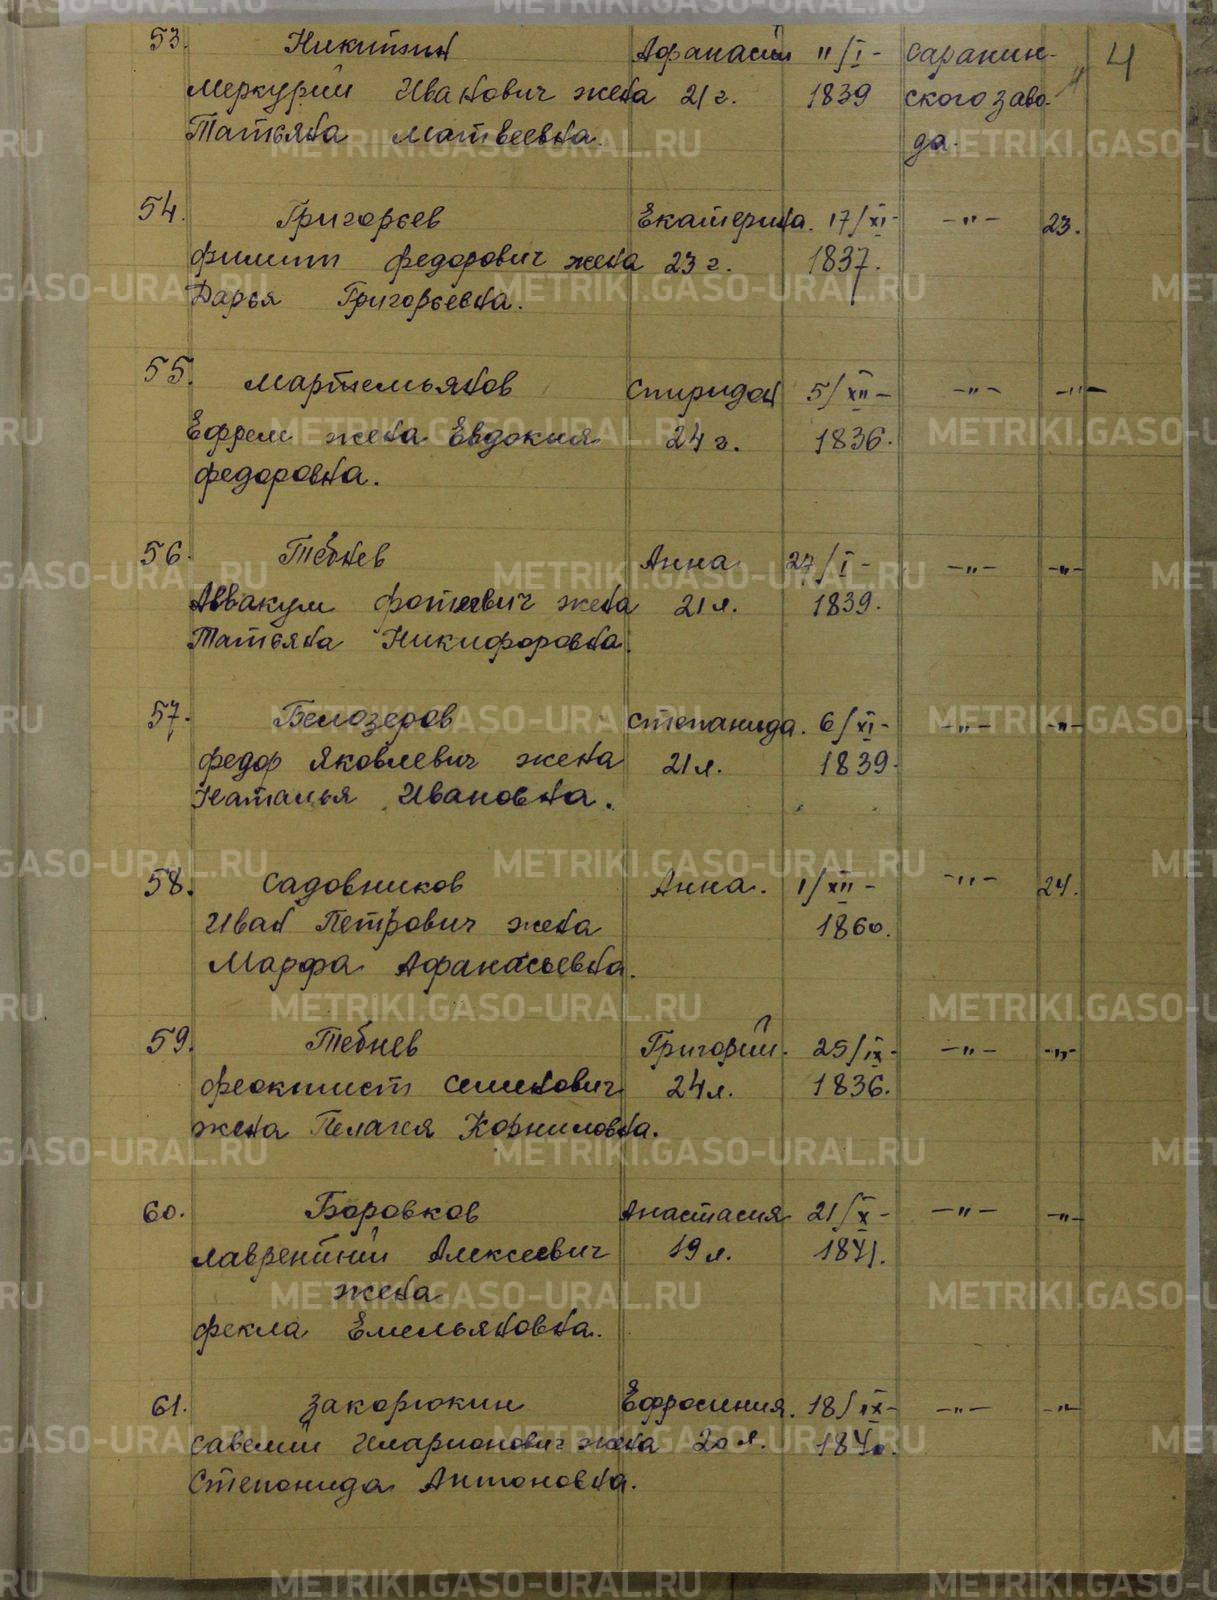 4
53. Никитин Афанасий 11/I- Саранин-
Меркурий Иванович жена 21 г. 1839 ского заво-
Татьяна Матвеевна. да.
54. Григорьев Екатерина. 17/XI- -"- 23.
Филипп Федорович жена 23 г. 1837.
Дарья Григорьевна.
55. Мартемьянов Спиридон 5/XII- -"- -"-
Ефрем жена Евдокия 24 г. 1836.
Федоровна.
56. Тебнев Анна 27/I- -"- -"-
Аввакум Фотеевич жена 21 л. 1839.
Татьяна Никифоровна.
57. Белозеров Степанида. 6/XI- -"- -"-
Федор Яковлевич жена 21 л. 1839.
Наталья Ивановна.
58. Садовников Анна. 1/XII- -"- 24.
Иван Петрович жена 1860.
Марфа Афанасьевна.
59. Тебнев Григорий. 25/IX- -"- -"-
Феоктист Семенович 24 л. 1836.
жена Пелагея Корниловна.
60. Боровков Анастасия 21/X- -"- -"-
Лаврентий Алексеевич 19 л. 1841.
жена
Фекла Емельяновна.
61. Закорюкин Ефросиния. 18/IX- -"- -"-
Савелий Иларионович жена 20 л. 1840.
Степонида Антоновна.
METRIKI.GASO-URAL.RU